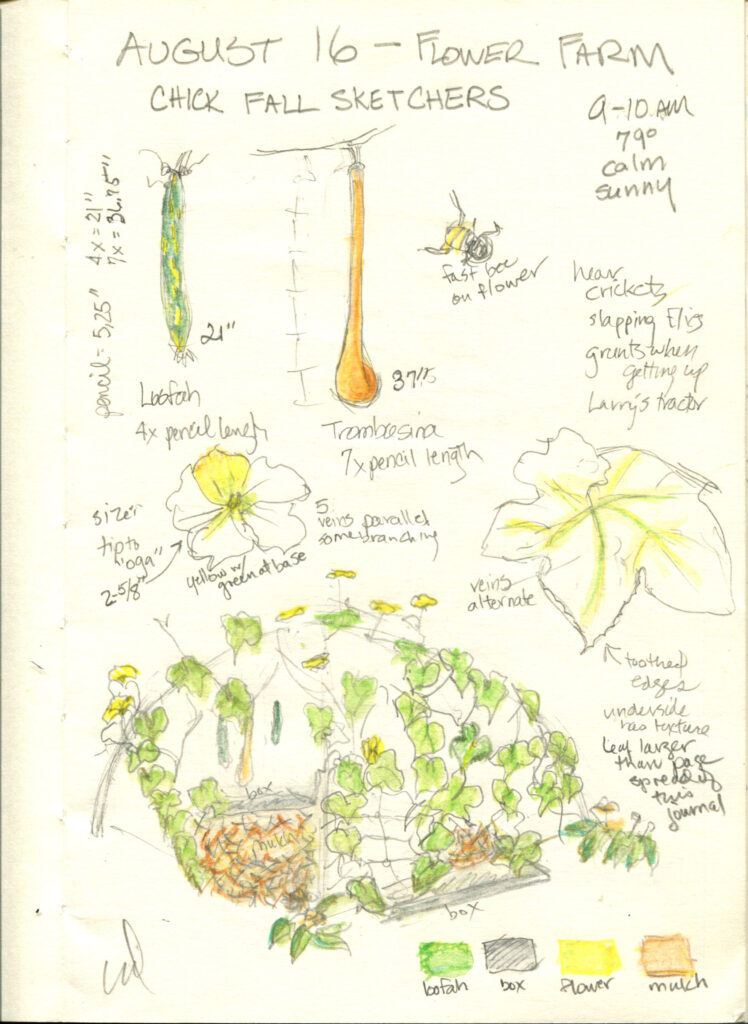 AUGUST 16 - FLOWER FARM
CHICK FALL SKETCHERS
9-10 AM
79°
calm
sunny
pencil = 5.25"
4x = 21"
7x = 36.75"
21"
Loofah
4x pencil length
37"
Trombosina
7x pencil length
fast bee
on flower
hear
crickets
slapping flies
grunts when
getting up
Larry's tractor
size:
tip to
2-5/8"
yellow w/
green at base
5
veins parallel
some branching
veins
alternate
toothed
edges
underside
has texture
leaf larger
than page
spread of
this
journal
box
mulch
box
loofah
box
flower
mulch